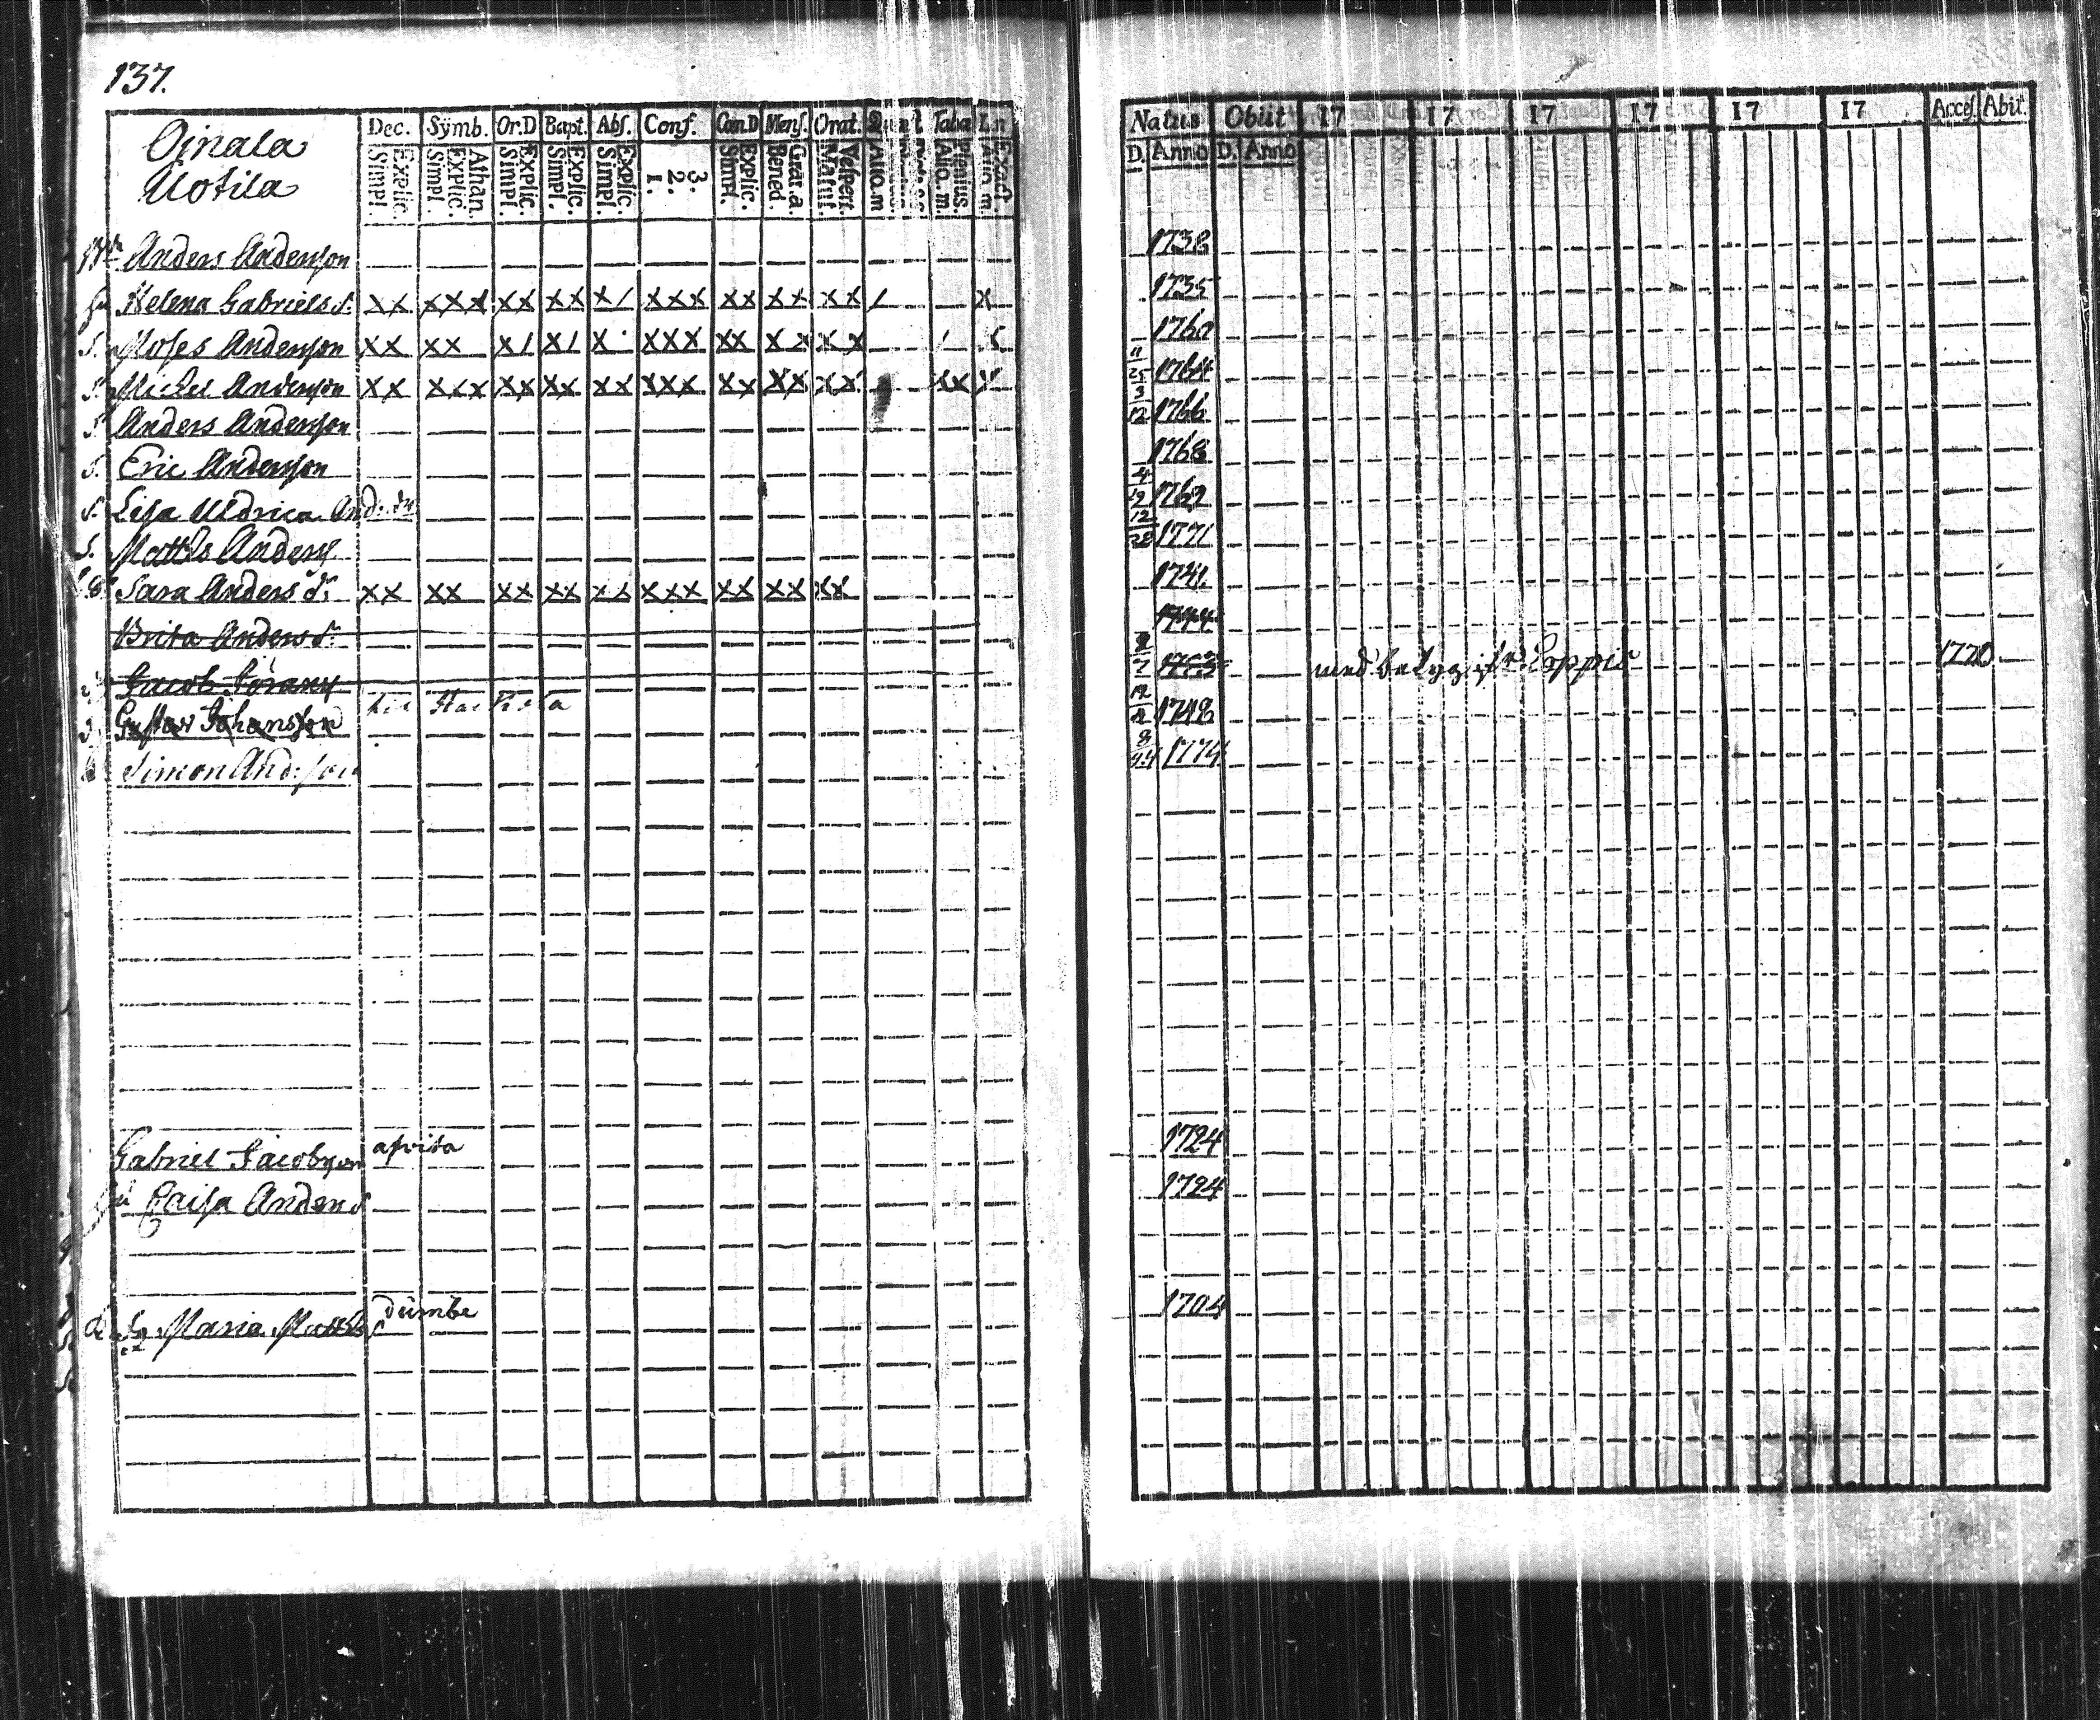 137.
Ojnala
Uotila
Dec. Symb. Or.D Bapt. Abs. Conf. Can.D Mens. Orat. Taba
Explic. Simpl. Athan. Explic. Simpl. Explic. Simpl. Explic. Simpl. Explic. Simpl. 3. 2. 1. Explic. Simpl. Grat. a. Bened. Vespert. Matut. Alio. m Plenius. Alio. m. Exact Alio. m.
Natus Obiit 17 17 17 17 17 17 Acces. Abit.
D. Anno D. Anno
Anders Andersson 1738
hu Helena Gabriels d. xx xxx xx xx x/ xxx xx xx xx / x 1735
S. Moses Andersson xx xx x/ x/ x xxx xx xx xx 1760
S. Michel Andersson xx xxx xx xx xx xxx xx xx xx xx x 11/25 1764
S. Anders Andersson 3/12 1766
S. Eric Andersson 1768
Lisa Uldrica And: dr 4/19 1769
S. Matths Anderss 12/28 1771
Sara Anders d: xx xx xx xx xx xxx xx xx xx 1741
Brita Anders d. 1744
Jacob Jöranss med betyg ifr. Loppis 1770
Gustav Johansson 1748
Simon And:son 8/24 1774
Gabriel Jacobsson afvita 1724
hu Caisa Anders d 1724
Maria Matts d dumbe 1704